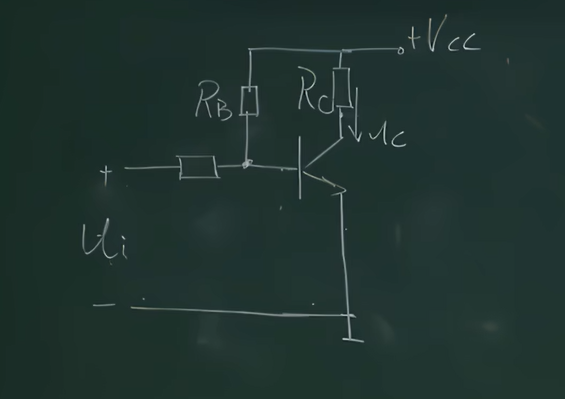 +Vcc
RB
Rc
uc
+
Ui
−